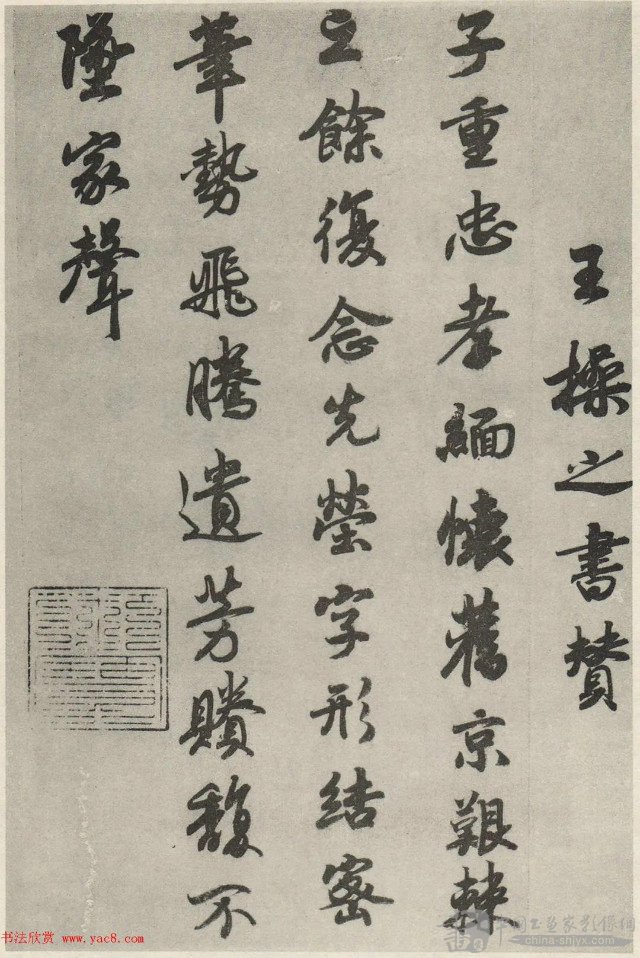 王操之書贊
子重忠孝緬懷舊京艱棘
之餘復念先塋字形結密
筆勢飛騰遺芳賸馥不
墜家聲
书法欣赏 www.yac8.com